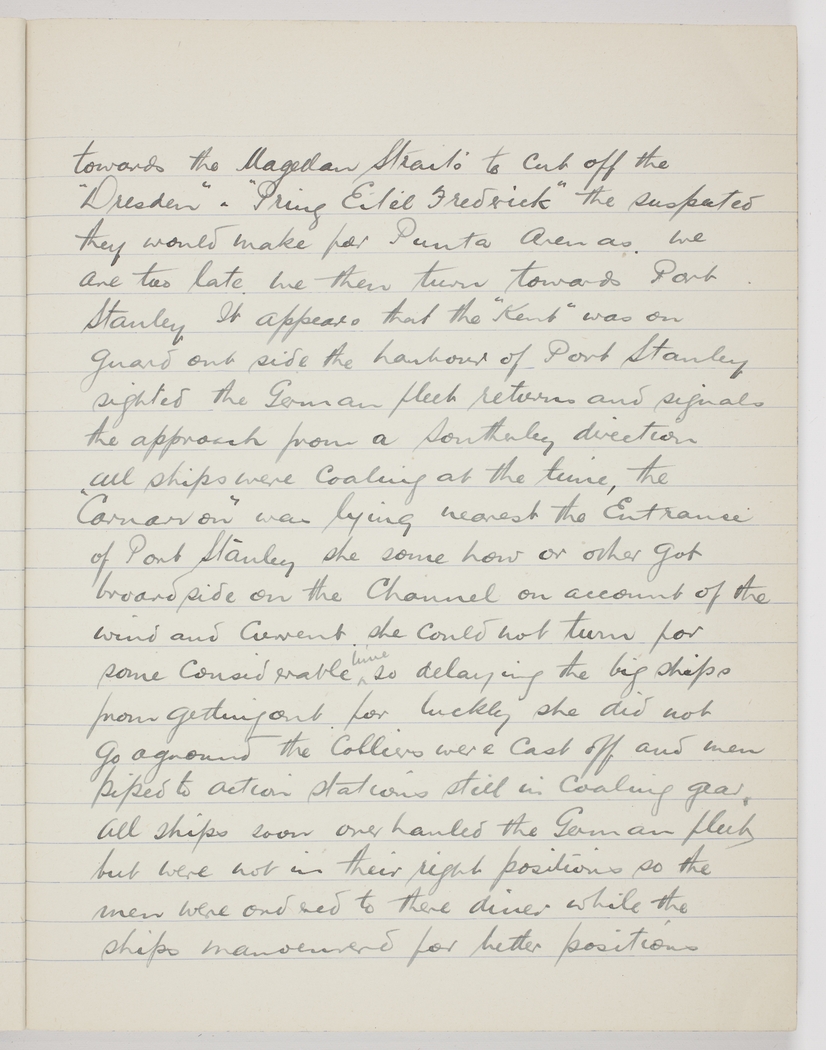 towards the Magellan Straits to cut off the
"Dresden" & "Pring Eitel Frederick" the suspected
they would make for Punta Arenas. we
are too late. we then turn towards Port
Stanley It appears that the "Kent" was on
guard out side the harbour of Port Stanley
sighted the German fleet returns and signals
the approach from a Southerley direction
all ships were Coaling at the time, the
"Carnarvon" was lying nearest the Entrance
of Port Stanley she some how or other got
broardside on the Channel on account of the
wind and Current she could not turn for
some considerable time so delaying the big ships
from getting out for luckly she did not
go aground the Colliers were cast off and men
piped to action stations still in Coaling gear.
all ships soon overhauled the German fleet
but were not in their right positions so the
men were ordered to there diner while the
ships manouvered for better positions